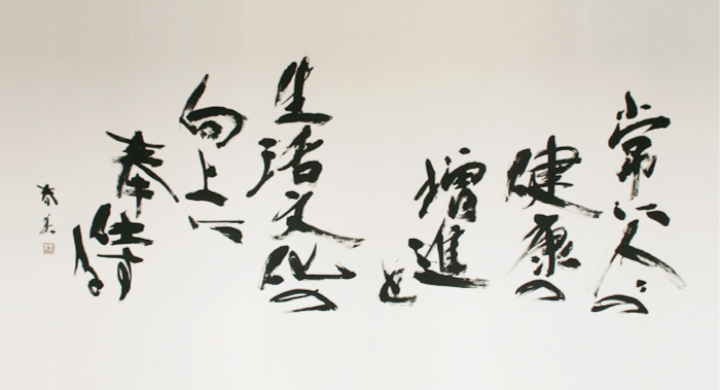 常に人々の
健康の
増進と
生活文化の
向上に
奉仕する
春美